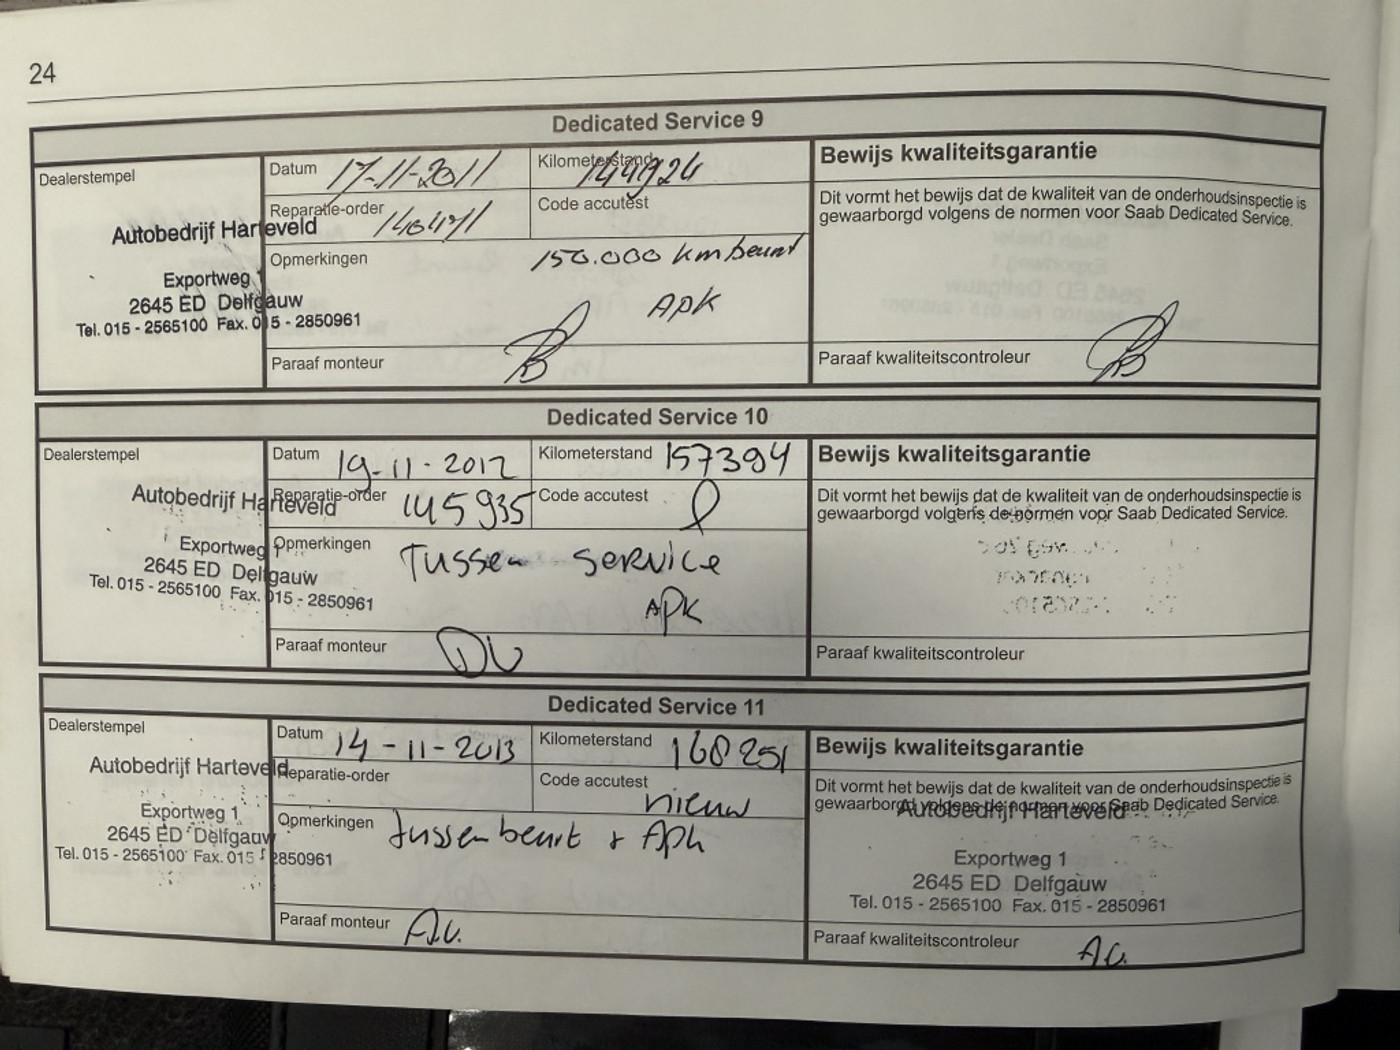 24
Dedicated Service 9
Dealerstempel
Autobedrijf Harteveld
Exportweg 1
2645 ED Delfgauw
Tel. 015 - 2565100 Fax. 015 - 2850961
Datum 17-11-2011
Kilometerstand 144924
Reparatie-order
Code accutest
Opmerkingen 150.000 km beurt
APK
Paraaf monteur
Bewijs kwaliteitsgarantie
Dit vormt het bewijs dat de kwaliteit van de onderhoudsinspectie is
gewaarborgd volgens de normen voor Saab Dedicated Service.
Paraaf kwaliteitscontroleur
Dedicated Service 10
Dealerstempel
Autobedrijf Harteveld
Exportweg 1
2645 ED Delfgauw
Tel. 015 - 2565100 Fax. 015 - 2850961
Datum 19-11-2012
Kilometerstand 157394
Reparatie-order 145935
Code accutest
Opmerkingen Tussen service
APK
Paraaf monteur
Bewijs kwaliteitsgarantie
Dit vormt het bewijs dat de kwaliteit van de onderhoudsinspectie is
gewaarborgd volgens de normen voor Saab Dedicated Service.
Paraaf kwaliteitscontroleur
Dedicated Service 11
Dealerstempel
Autobedrijf Harteveld
Exportweg 1
2645 ED Delfgauw
Tel. 015 - 2565100 Fax. 015 - 2850961
Datum 14-11-2013
Kilometerstand 168251
Reparatie-order
Code accutest nieuw
Opmerkingen tussenbeurt + Apk
Paraaf monteur
Bewijs kwaliteitsgarantie
Dit vormt het bewijs dat de kwaliteit van de onderhoudsinspectie is
gewaarborgd volgens de normen voor Saab Dedicated Service.
Autobedrijf Harteveld
Exportweg 1
2645 ED Delfgauw
Tel. 015 - 2565100 Fax. 015 - 2850961
Paraaf kwaliteitscontroleur